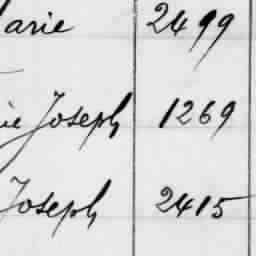 arie 2499
ie Joseph 1269
Joseph 2415